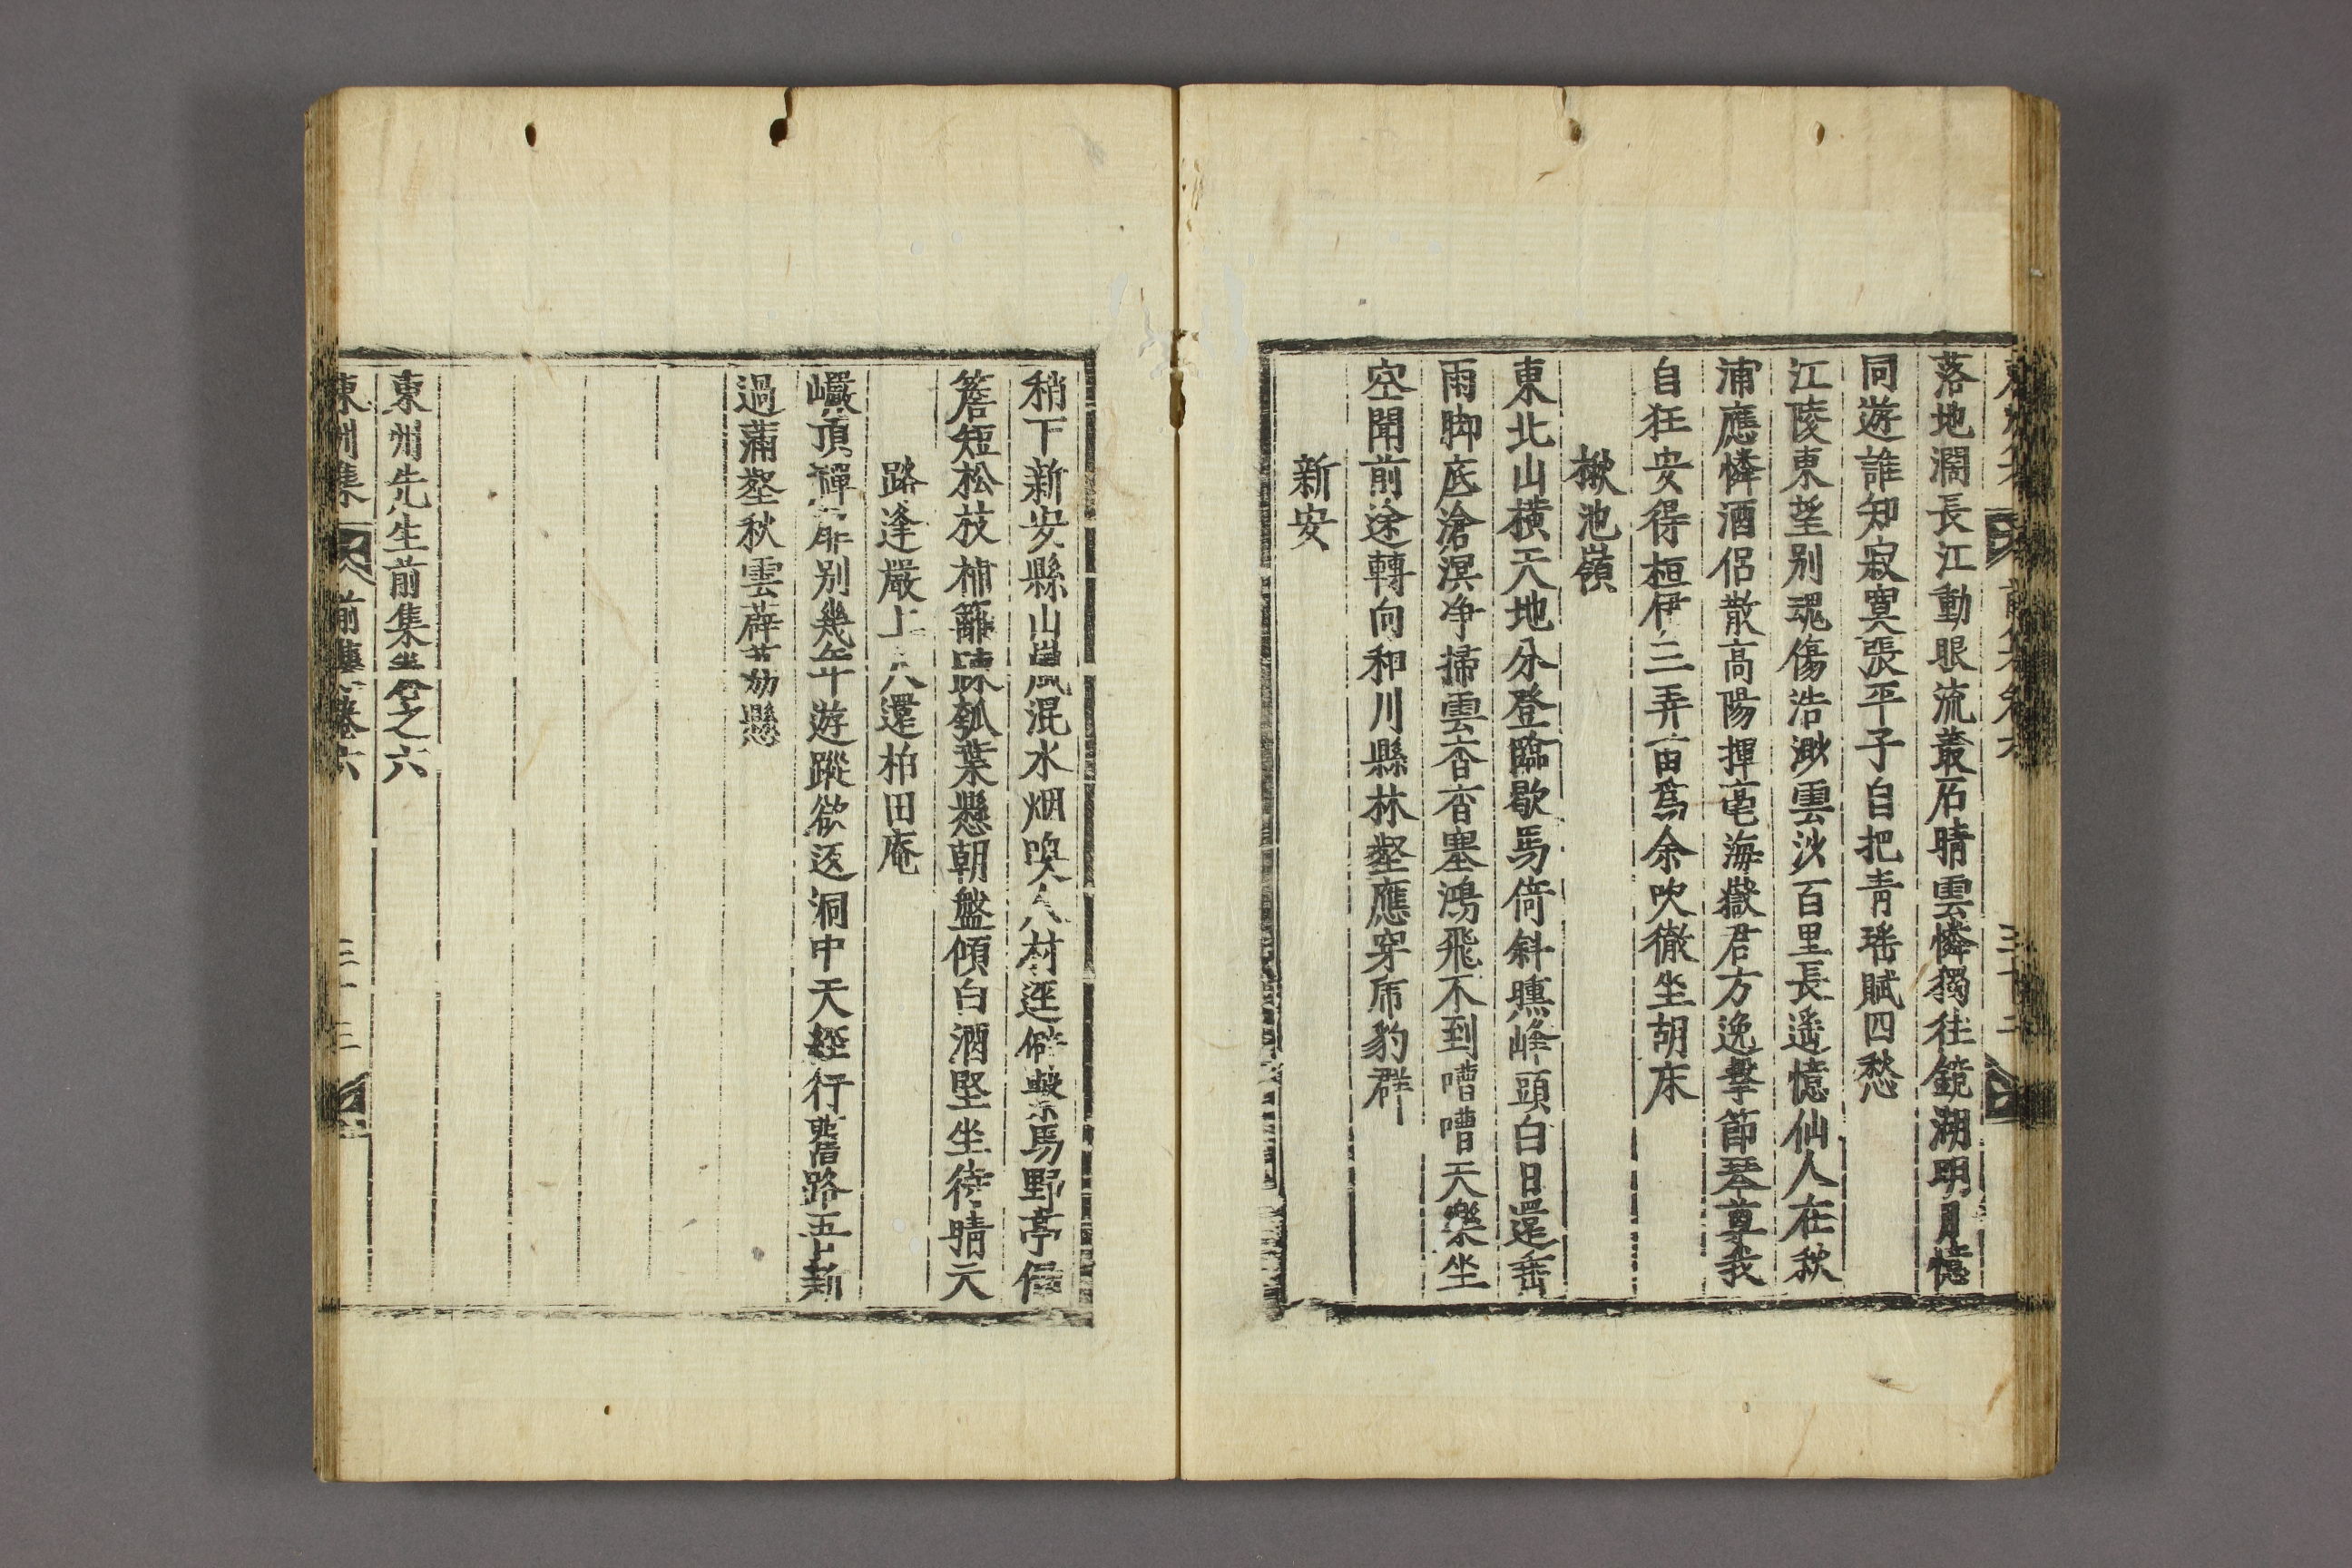 東州集 前集卷六 三十二
落地濶長江動眼流叢石晴雲憐獨往鏡湖明月憶
同遊誰知寂寞張平子白把靑瑤賦四愁
江陵東望别魂傷浩渺雲沙百里長遙憶仙人在秋
浦應憐酒侶散高陽揮毫海嶽君方逸擊節琴尊我
自狂安得桓伊三弄笛爲余吹徹坐胡床
楸池嶺
東北山橫天地分登臨歇馬倚斜曛峰頭白日還垂
雨脚底滄溟净掃雲杳杳塞鴻飛不到嘈嘈天樂坐
空聞前途轉向和川縣林壑應穿虎豹群
新安
稍下新安縣山嵐混水烟喚人村逕僻繫馬野亭偏
簷短松枝補籬踈瓠葉懸朝盤傾白酒堅坐待晴天
路逢巖上人還柏田庵
巘頂禪扉别幾年遊蹤欲返洞中天經行舊路五
過蒲壑秋雲薜荔懸
東州先生前集卷之六
東州集 前集卷六 三十三